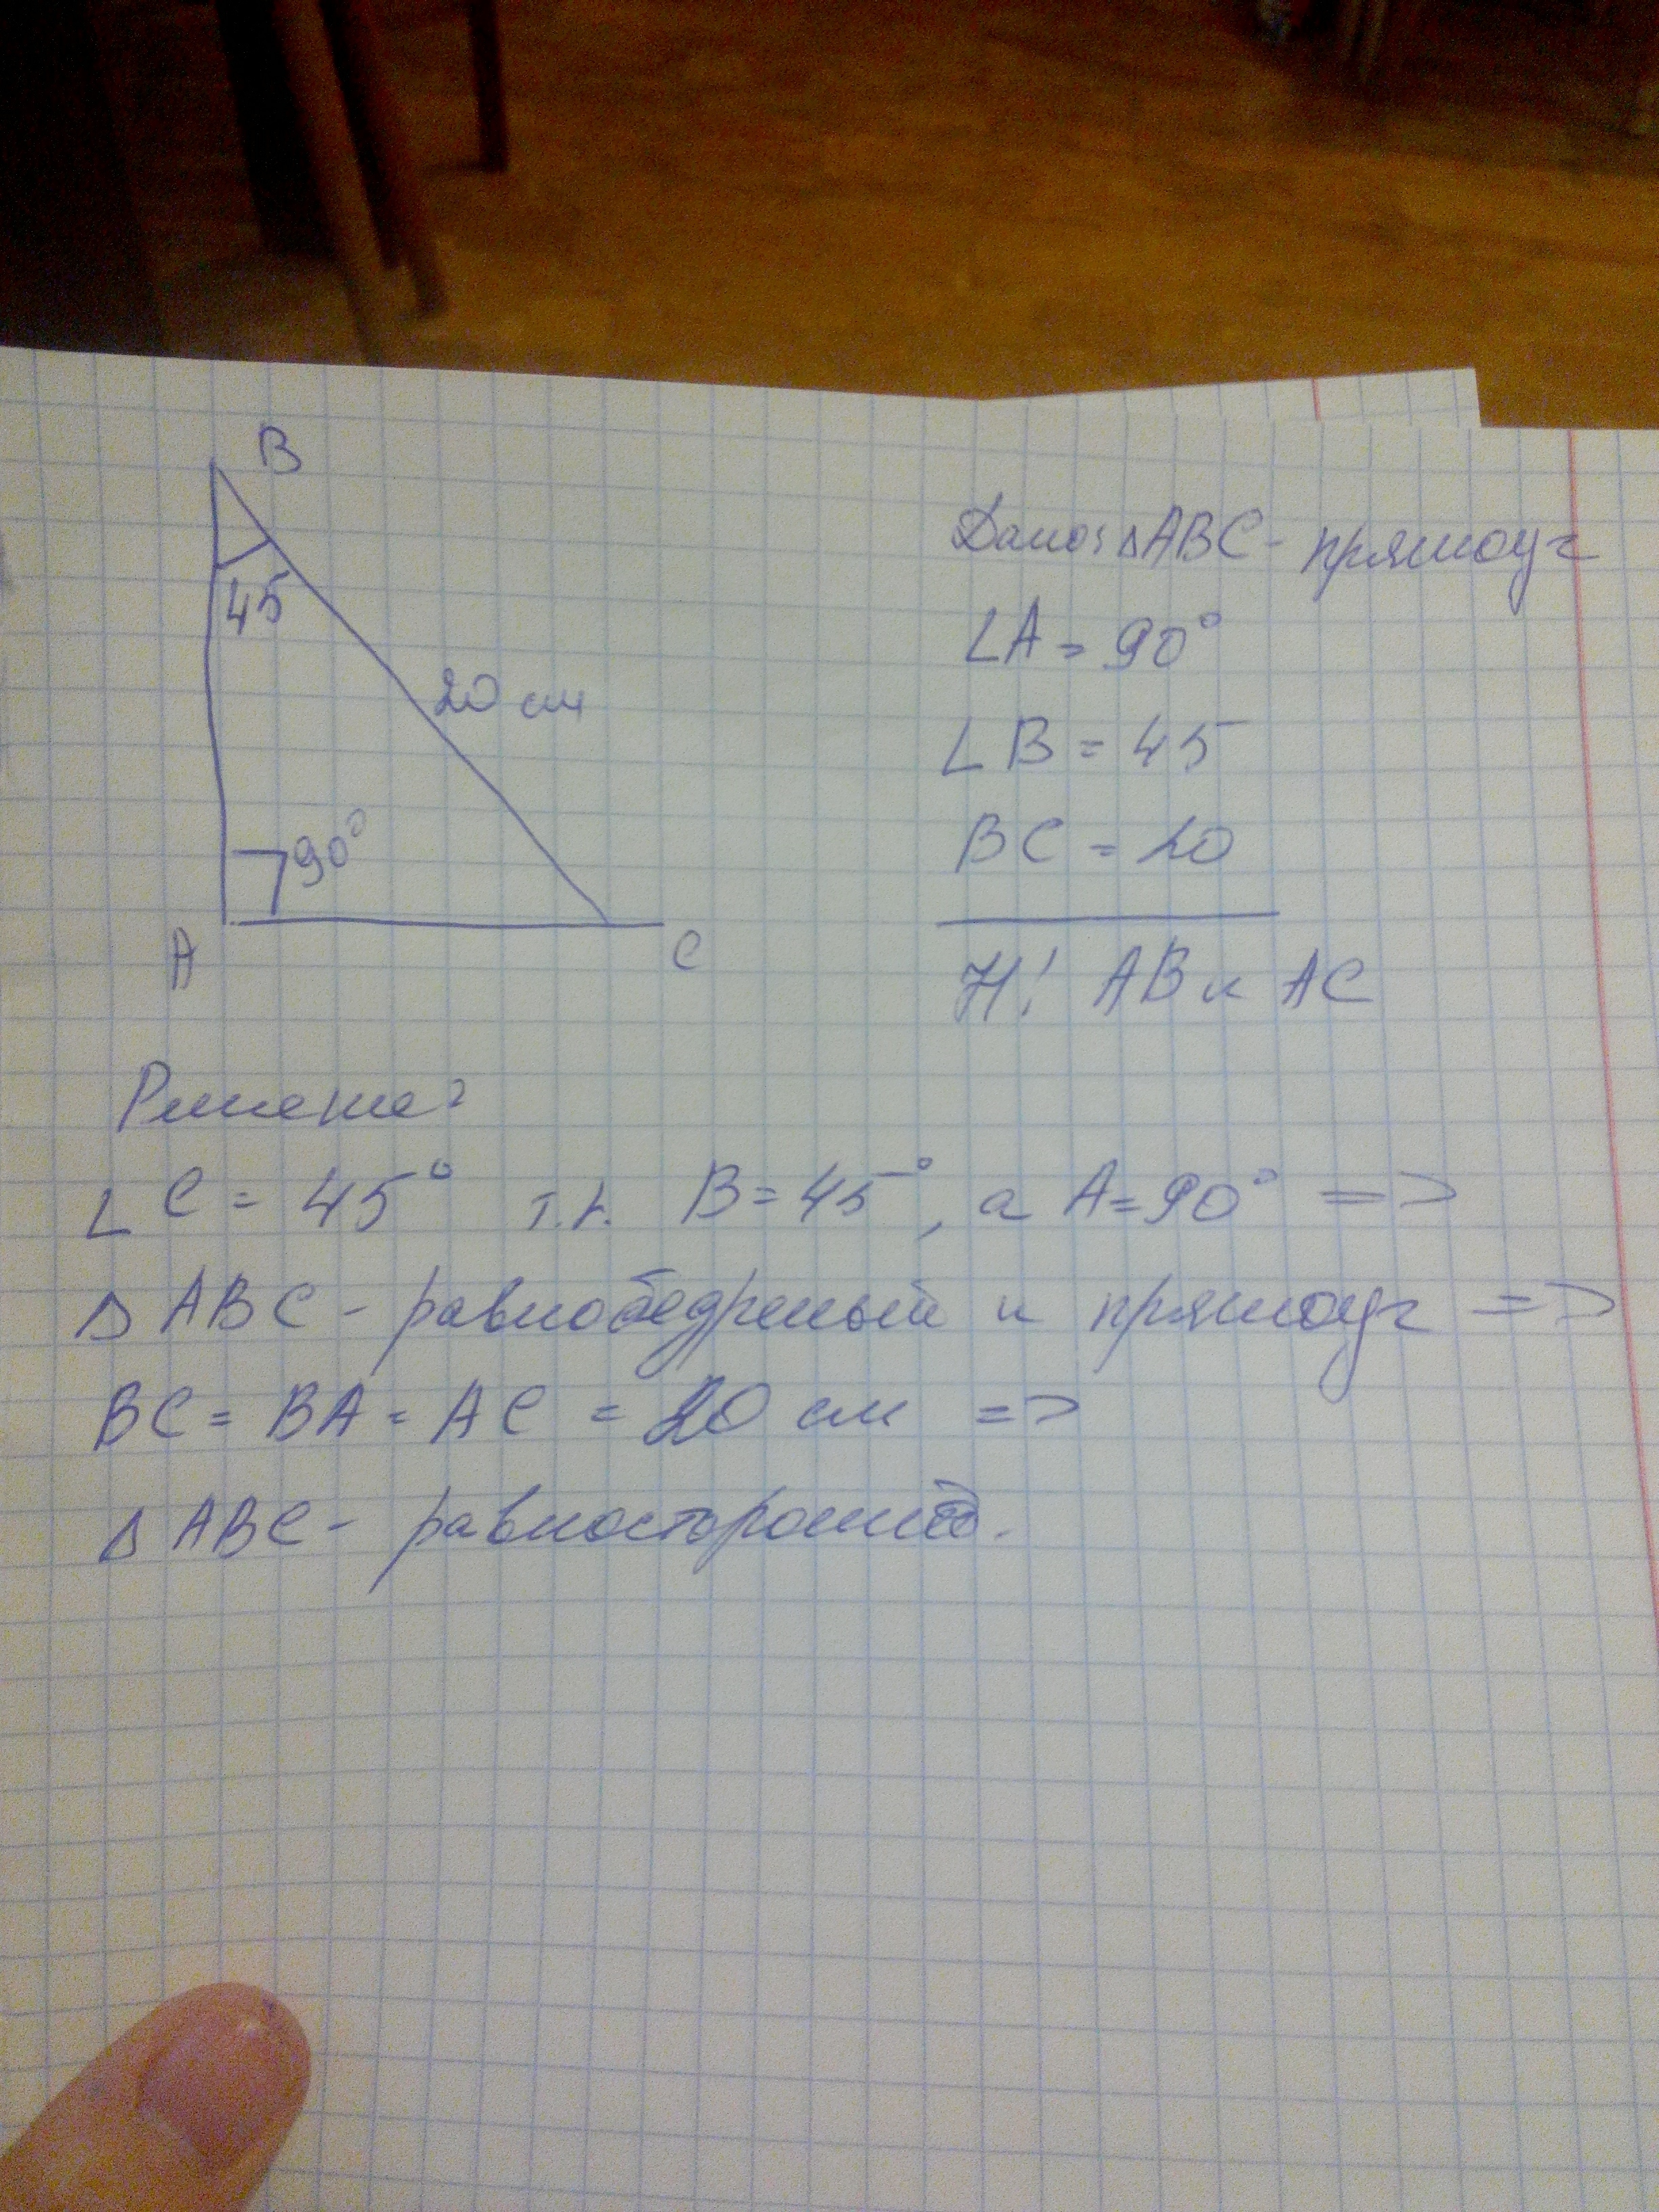 B
45
20 см
90°
A
C
Дано: △ABC - прямоуг
∠A = 90°
∠B = 45
BC = 20
Н! AB и AC
Решение:
∠C = 45° т.к. B = 45°, а A = 90° =>
△ABC - равнобедреный и прямоуг =>
BC = BA = AC = 20 см =>
△ABC - равносторонний.